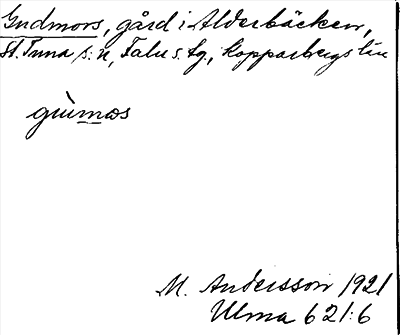 Gudmors, gård i Alderbäcken,
St. Tuna s:n, Falu s. tg., Kopparbergs län
gùmos
M. Andersson 1921
Ulma 621:6